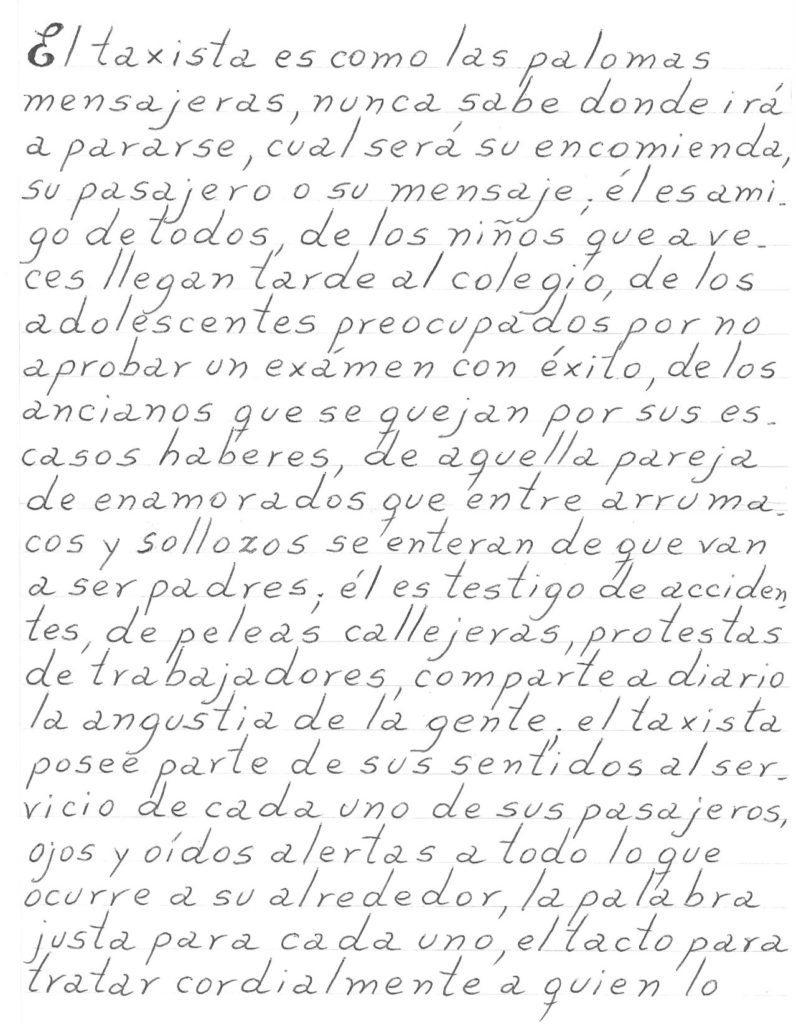 El taxista es como las palomas
mensajeras, nunca sabe donde irá
a pararse, cual será su encomienda,
su pasajero o su mensaje; él es ami-
go de todos, de los niños que a ve-
ces llegan tarde al colegio, de los
adolescentes preocupados por no
aprobar un exámen con éxito, de los
ancianos que se quejan por sus es-
casos haberes, de aquella pareja
de enamorados que entre arruma-
cos y sollozos se enteran de que van
a ser padres; él es testigo de acciden
tes, de peleas callejeras, protestas
de trabajadores, comparte a diario
la angustia de la gente; el taxista
posee parte de sus sentidos al ser-
vicio de cada uno de sus pasajeros,
ojos y oídos alertas a todo lo que
ocurre a su alrededor, la palabra
justa para cada uno, el tacto para
tratar cordialmente a quien lo